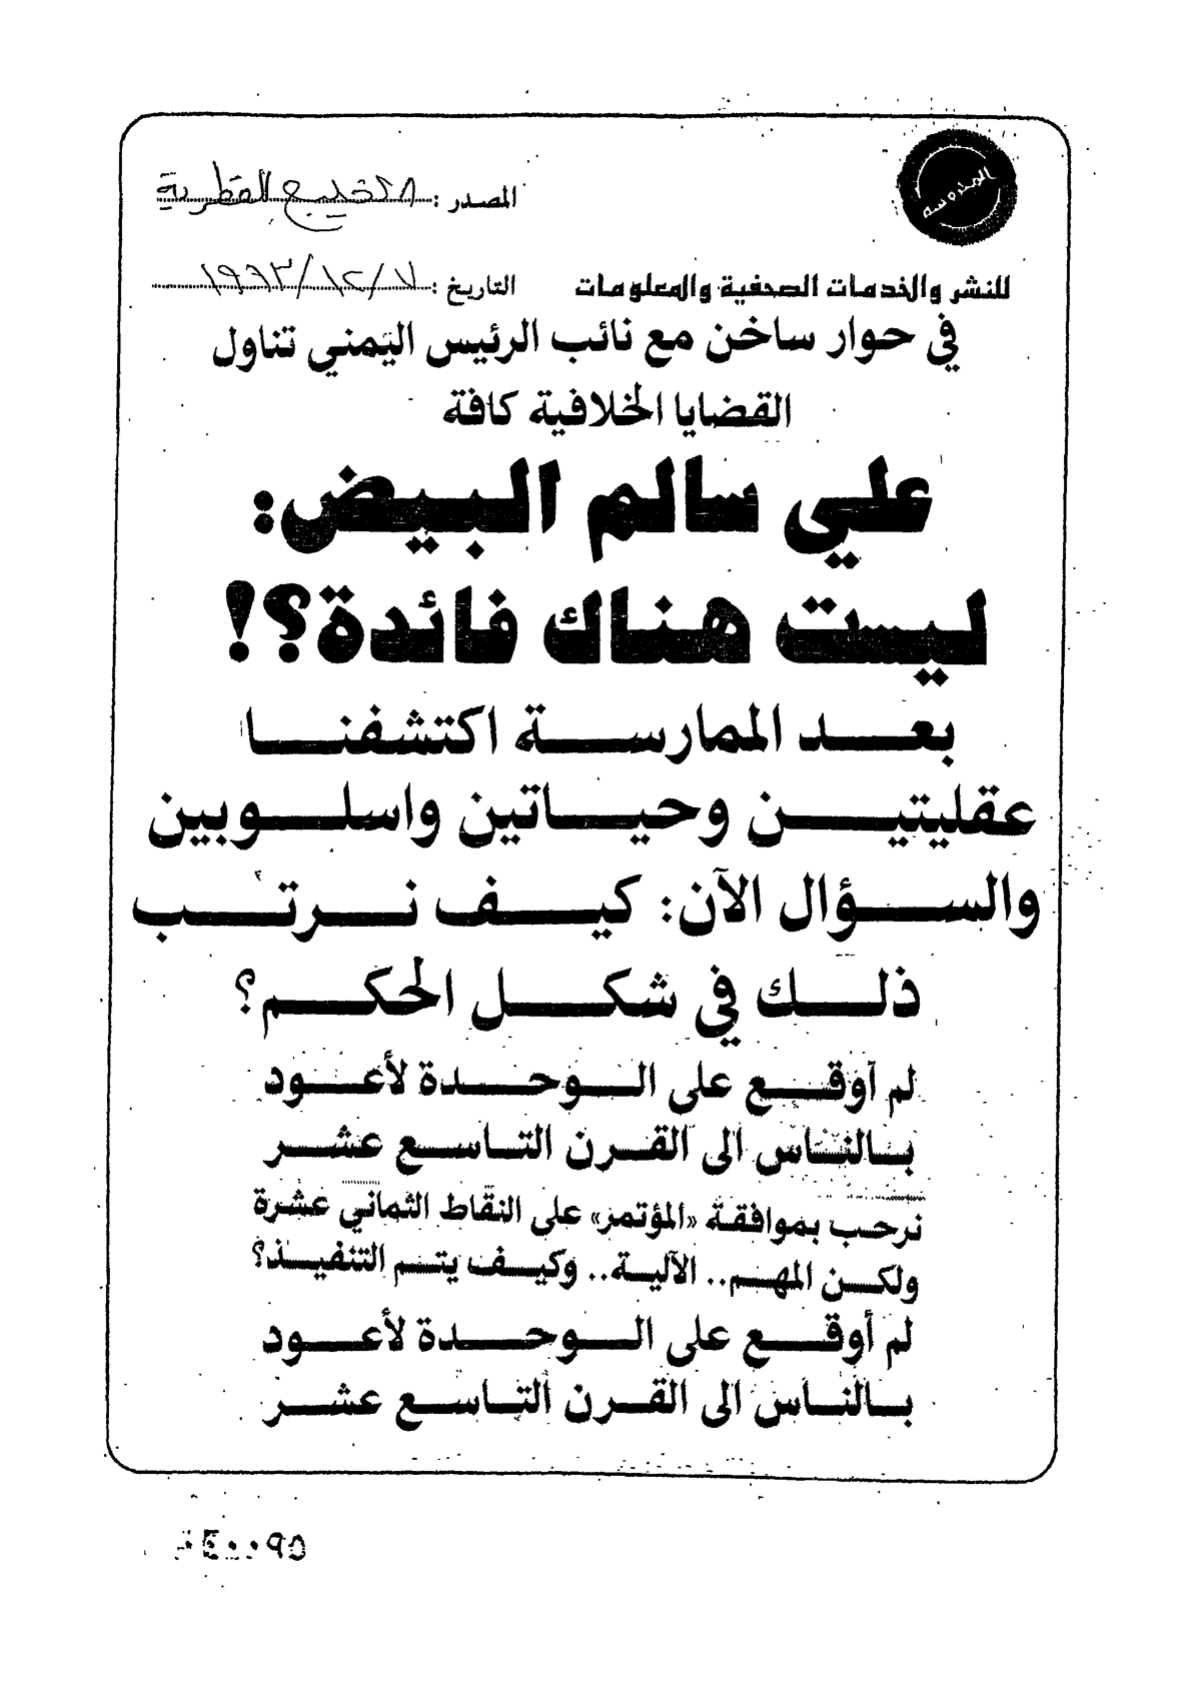 المصدر: الخليج القطرية
المدروسة
للنشر والخدمات الصحفية والمعلومات التاريخ: ١٩٩٣/١٢/٧
في حوار ساخن مع نائب الرئيس اليمني تناول
القضايا الخلافية كافة
علي سالم البيض:
ليست هناك فائدة؟!
بعد الممارسة اكتشفنا
عقليتين وحياتين واسلوبين
والسؤال الآن: كيف نرتب
ذلك في شكل الحكم؟
لم أوقع على الوحدة لأعود
بالناس الى القرن التاسع عشر
نرحب بموافقة «المؤتمر» على النقاط الثماني عشرة
ولكن المهم.. الآلية.. وكيف يتم التنفيذ؟
لم أوقع على الوحدة لأعود
بالناس الى القرن التاسع عشر